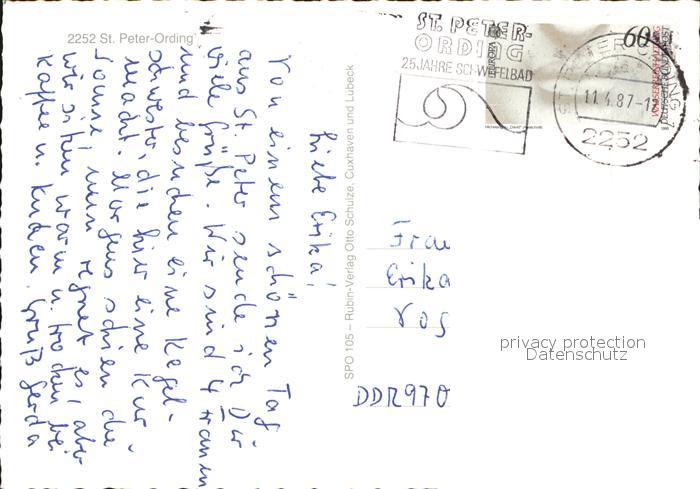 2252 St. Peter-Ording
Liebe Erika!
Von einem schönen Tag
aus St. Peter sende ich Dir
viele Grüße. Wir sind 4 Frauen
und besuchen eine Kegel-
schwester, die hier eine Kur
macht. Morgens schien die
Sonne, nun regnet es, aber
wir sitzen warm u. trocken bei
Kaffee u. Kuchen. Gruß Gerda
SPO 105 – Rubin-Verlag Otto Schulze, Cuxhaven und Lübeck
ST. PETER-
ORDING
25 JAHRE SCHWEFELBAD
60
DEUTSCHE BUNDESPOST
11.4.87-1
2252
Frau
Erika
Vog
DDR 970
privacy protection
Datenschutz